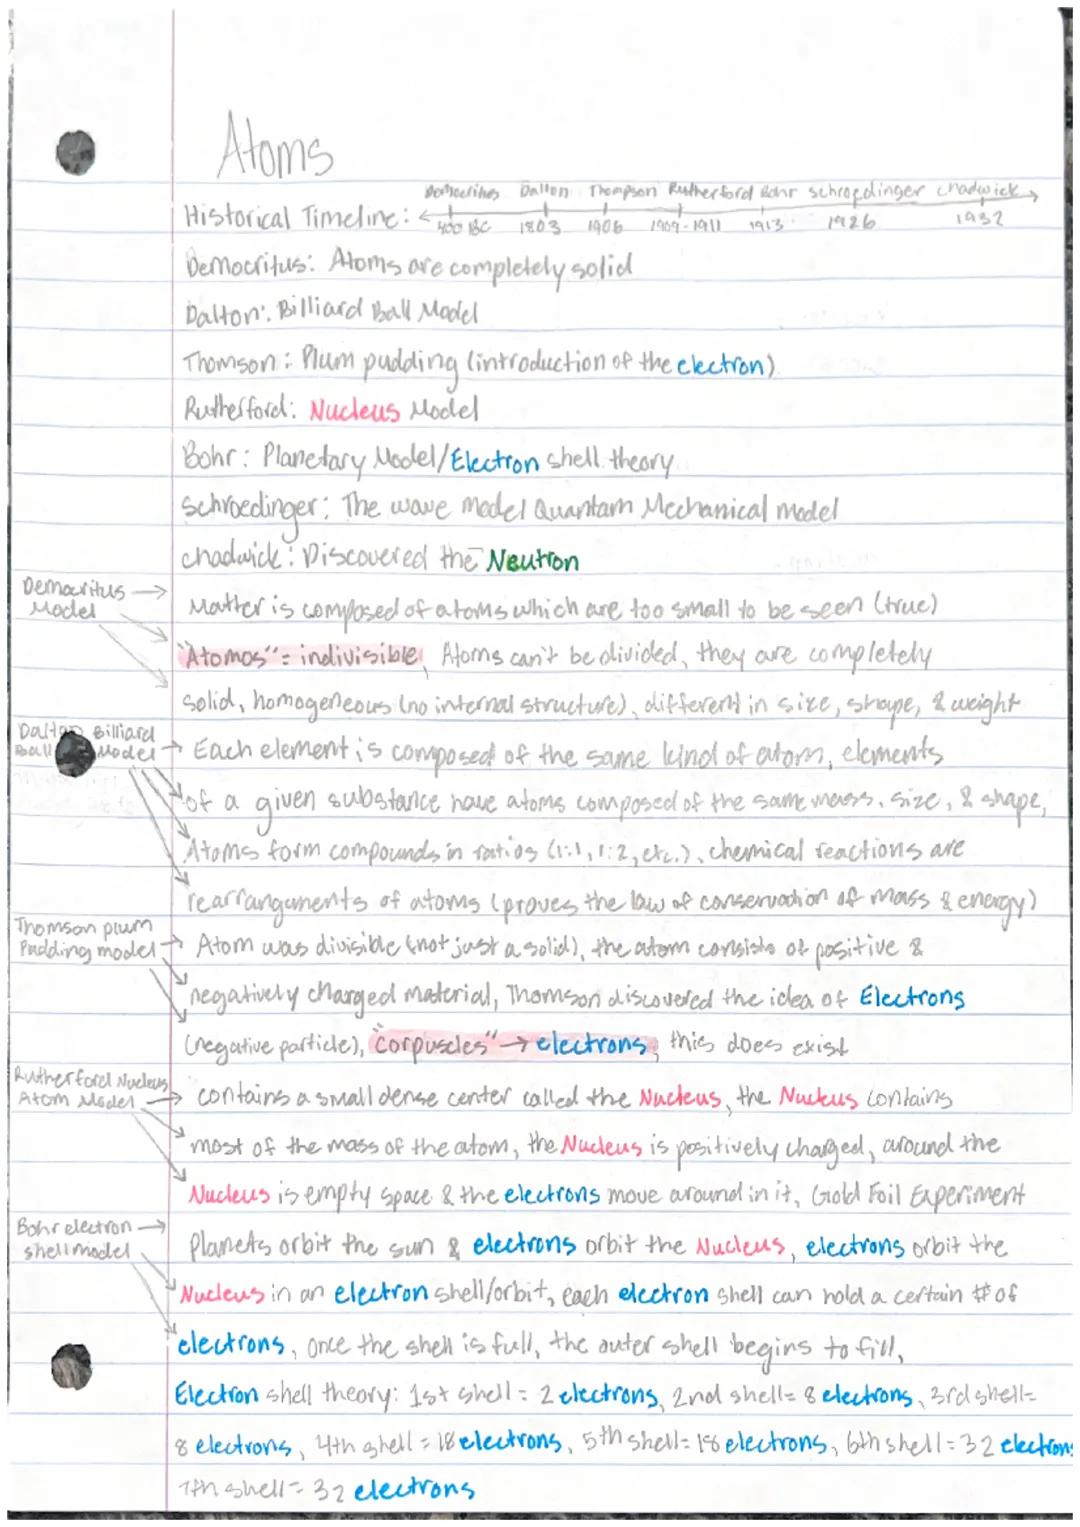 Atoms
Democritus Dalton Thompson Rutherford Bohr schroedinger chadwick
Historical Timeline: 400 BC 1803 1906 1909-1911 1913 1926 1932
Democritus: Atoms are completely solid
Dalton: Billiard Ball Model
Thomson: Plum pudding (introduction of the electron)
Rutherford: Nucleus Model
Bohr: Planetary Model/Electron shell theory
Schroedinger: The wave model Quantam Mechanical model
chadwick: Discovered the Neutron
Democritus Model
Matter is composed of atoms which are too small to be seen (true)
"Atomos" = indivisible, Atoms can't be divided, they are completely
solid, homogeneous (no internal structure), different in size, shape, & weight
Dalton Billiard Ball Model
Each element is composed of the same kind of atom, elements
of a given substance have atoms composed of the same mass, size, & shape,
Atoms form compounds in ratios (1:1, 1:2, etc.), chemical reactions are
rearrangments of atoms (proves the law of conservation of mass & energy)
Thomson plum Pudding model
Atom was divisible (not just a solid), the atom consists of positive &
negatively charged material, Thomson discovered the idea of Electrons
(negative particle), "corpuscles" → electrons, this does exist
Rutherford Nucleus Atom Model
contains a small dense center called the Nucleus, the Nucleus contains
most of the mass of the atom, the Nucleus is positively charged, around the
Nucleus is empty space & the electrons move around in it, Gold Foil Experiment
Bohr electron shell model
Planets orbit the sun & electrons orbit the Nucleus, electrons orbit the
Nucleus in an electron shell/orbit, each electron shell can hold a certain # of
electrons, once the shell is full, the outer shell begins to fill,
Electron shell theory: 1st shell = 2 electrons, 2nd shell = 8 electrons, 3rd shell =
8 electrons, 4th shell = 18 electrons, 5th shell = 18 electrons, 6th shell = 32 electrons
7th shell = 32 electrons